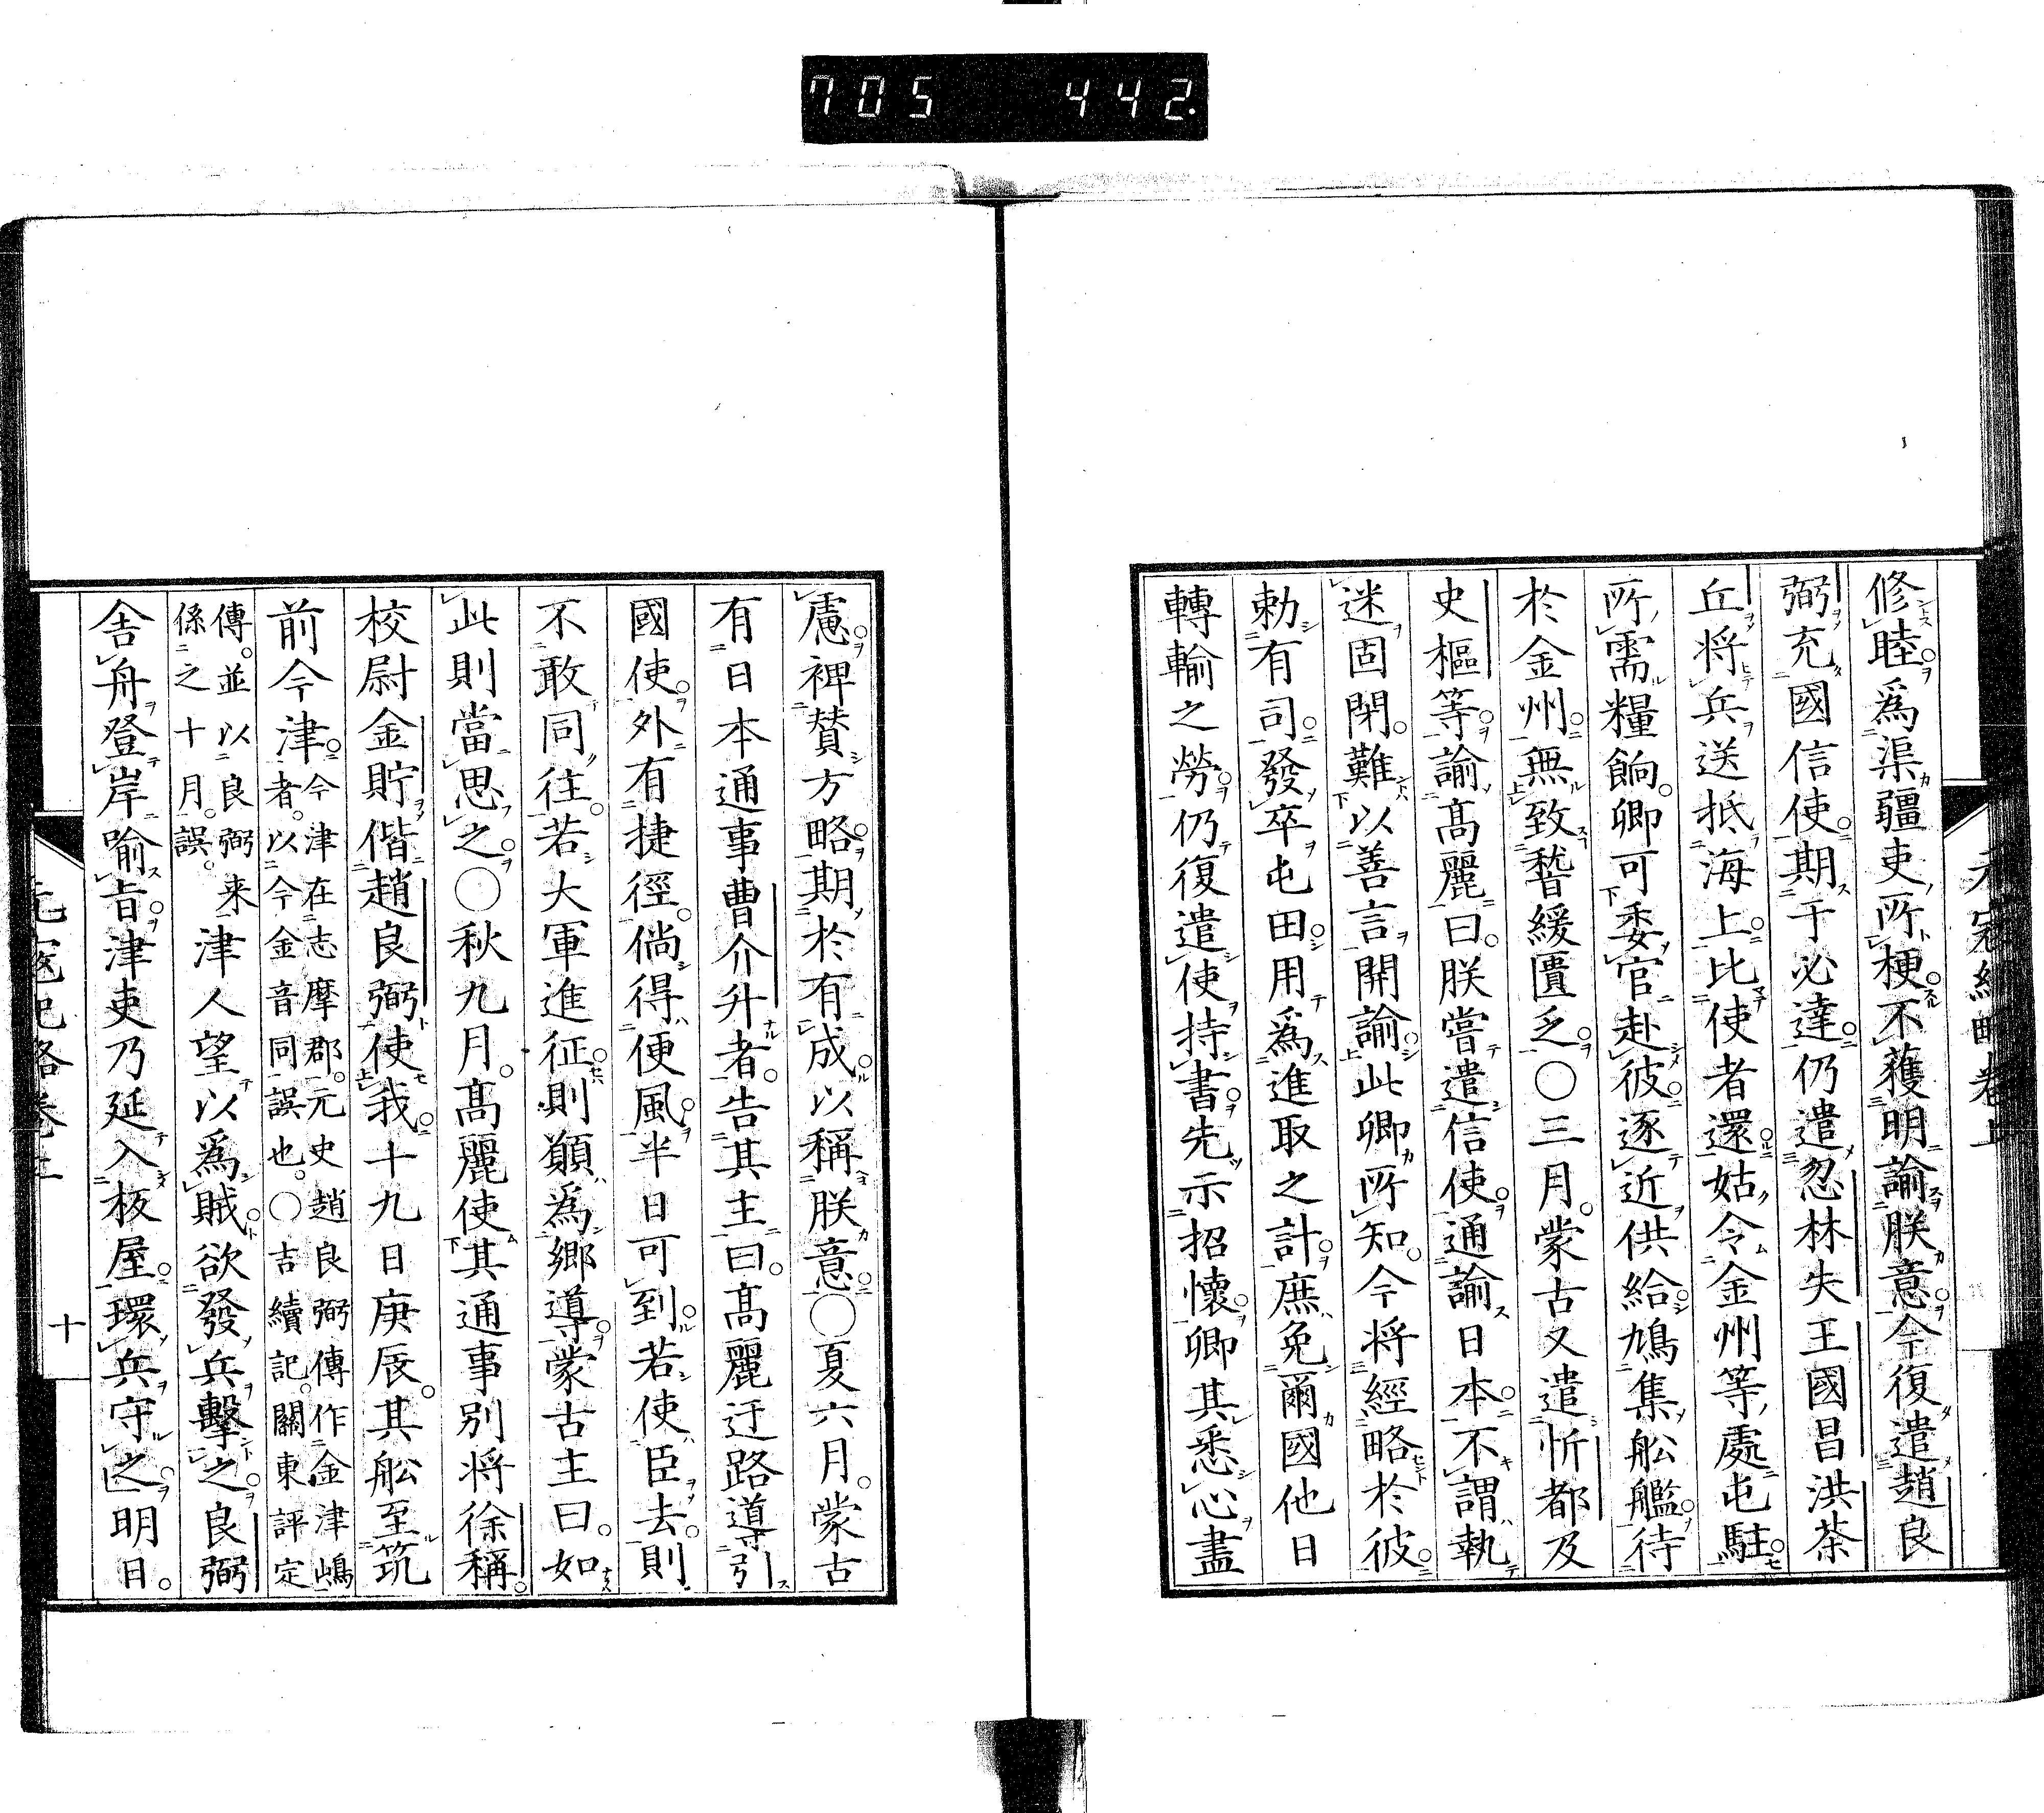 705 442
元寇紀略卷上
修睦爲渠疆吏所梗不獲明諭朕意今復遣趙良
弼充國信使期于必達仍遣忽林失王國昌洪茶
丘將兵送抵海上比使者還姑令金州等處屯駐
所需糧餉卿可委官赴彼逐近供給鳩集舩艦待
於金州無致稽緩匱乏○三月蒙古又遣忻都及
史樞等諭髙麗曰朕嘗遣信使通諭日本不謂執
迷固閉難以善言開諭此卿所知今將經略於彼
勅有司發卒屯田用爲進取之計庶免爾國他日
轉輸之勞仍復遣使持書先示招懷卿其悉心盡
慮裨賛方略期於有成以稱朕意○夏六月蒙古
有日本通事曹介升者告其主曰髙麗迂路導引
國使外有捷徑倘得便風半日可到若使臣去則
不敢同往若大軍進征則願爲郷導蒙古主曰如
此則當思之○秋九月髙麗使其通事別將徐稱
校尉金貯偕趙良弼使我十九日庚辰其舩至筑
前今津今津在志摩郡元史趙良弼傳作金津嶋
者以今金音同誤也○吉續記關東評定
傳並以良弼来
係之十月誤津人望以爲賊欲發兵擊之良弼
舎舟登岸喻旨津吏乃延入板屋環兵守之明日
元寇紀略卷上
十